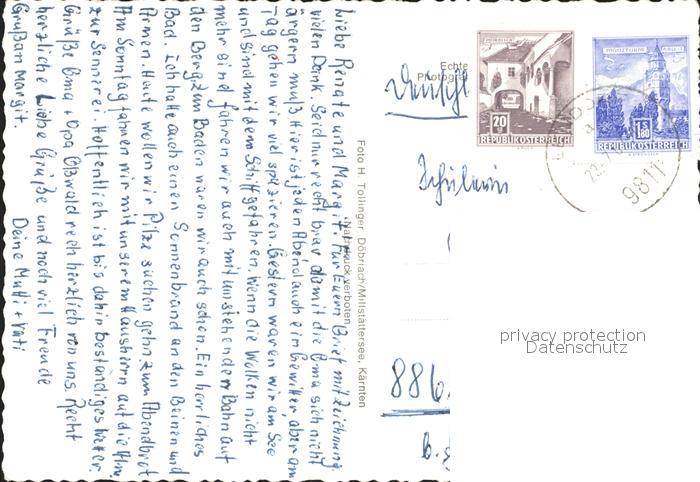 Liebe Renate und Margit. Für Euern Brief mit Zeichnung
vielen Dank. Seid nur recht brav damit die Oma sich nicht
ärgern muß. Hier ist jeden Abend auch ein Gewitter, aber am
Tag gehen wir viel spazieren. Gestern waren wir am See
und sind mit dem Schiff gefahren. Wenn die Wolken nicht
mehr sind fahren wir auch mit umstehender Bahn auf
den Berg. Zum Baden waren wir auch schon. Ein herrliches
Bad. Ich hatte auch einen Sonnenbrand an den Beinen und
Armen. Heute wollen wir Pilze suchen gehn zum Abendbrot
Am Sonntag fahren wir mit unserem Hausherrn auf die Alm
zur Sennerei. Hoffentlich ist bis dahin beständiges Wetter.
Grüße Oma + Opa Oßwald recht herzlich von uns. Recht
herzliche liebe Grüße und noch viel Freude
Gruß an Margit. Deine Mutti + Vati
Foto H. Tollinger, Döbriach/Millstättersee, Kärnten
Nachdruck verboten
Echte
Photogra
MÖRBISCH
20
g
REPUBLIK ÖSTERREICH
MÜNZTURM HALL i. T.
1 S 80
REPUBLIK ÖSTERREICH
9811
Deutschl
Schülerin
886
privacy protection
Datenschutz